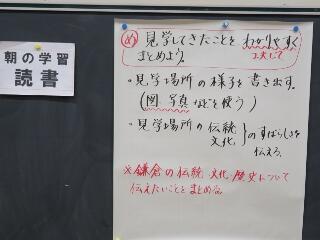 朝の学習
読書
め 見学してきたことをわかりやすく
工夫して
まとめよう。
・見学場所の様子を書き出す。
(図、写真などを使う)
・見学場所の伝統
文化
}のすばらしさを
伝える。
※鎌倉の伝統 文化 歴史について
伝えたいことをまとめる。